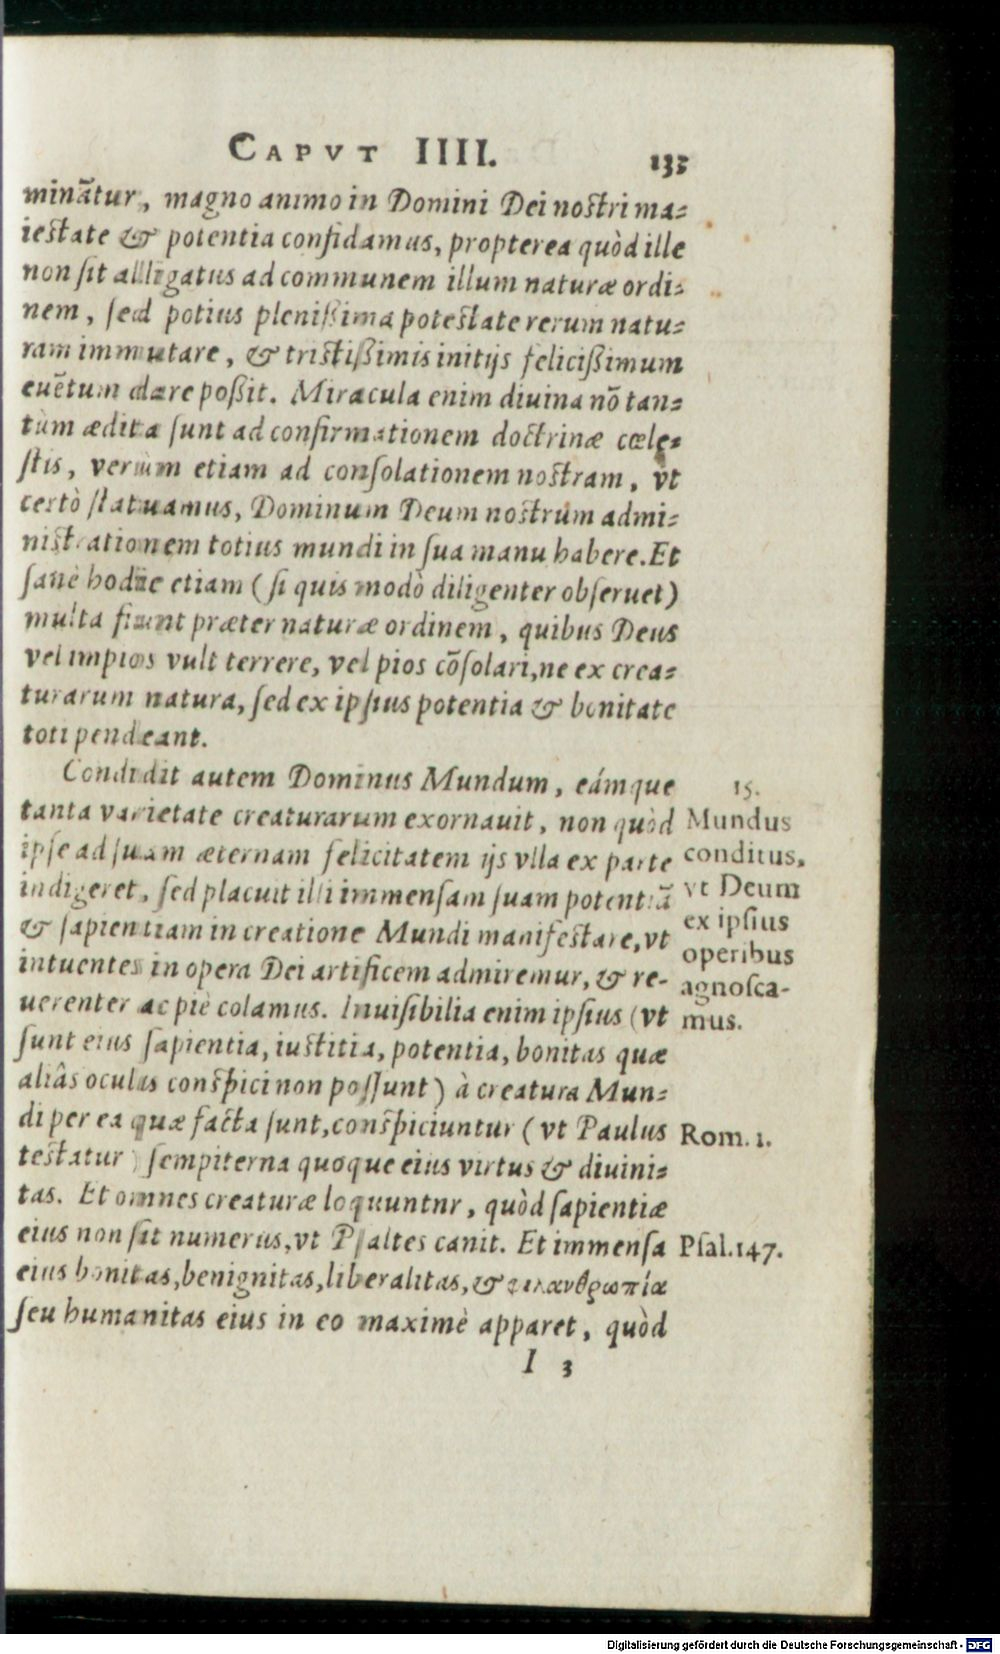 CAPVT IIII. 133
minãtur, magno animo in Domini Dei nostri ma-
iestate & potentia confidamus, propterea quòd ille
non sit alligatus ad communem illum naturæ ordi-
nem, sed potius plenißima potestate rerum natu-
ram immutare, & tristißimis initijs felicißimum
euẽtum dare poßit. Miracula enim diuina nõ tan-
tùm ædita sunt ad confirmationem doctrinæ cœle-
stis, verùm etiam ad consolationem nostram, vt
certò statuamus, Dominum Deum nostrum admi-
nistrationem totius mundi in sua manu habere. Et
sanè hodie etiam (si quis modò diligenter obseruet)
multa fiunt præter naturæ ordinem, quibus Deus
vel impios vult terrere, vel pios cõsolari, ne ex crea-
turarum natura, sed ex ipsius potentia & bonitate
toti pendeant.
Condidit autem Dominus Mundum, eámque
tanta varietate creaturarum exornauit, non quòd
ipse ad suam æternam felicitatem ijs vlla ex parte
indigeret, sed placuit illi immensam suam potentiã
& sapientiam in creatione Mundi manifestare, vt
intuentes in opera Dei artificem admiremur, & re-
uerenter ac piè colamus. Inuisibilia enim ipsius (vt
sunt eius sapientia, iustitia, potentia, bonitas quæ
aliâs oculis conspici non possunt) à creatura Mun-
di per ea quæ facta sunt, conspiciuntur (vt Paulus
testatur) sempiterna quoque eius virtus & diuini-
tas. Et omnes creaturæ loquuntnr, quòd sapientiæ
eius non sit numerus, vt Psaltes canit. Et immensa
eius bonitas, benignitas, liberalitas, & φιλανθρωπία
seu humanitas eius in eo maximè apparet, quòd
I 3
15.
Mundus
conditus,
vt Deum
ex ipsius
operibus
agnosca-
mus.
Rom. 1.
Psal. 147.
Digitalisierung gefördert durch die Deutsche Forschungsgemeinschaft - DFG